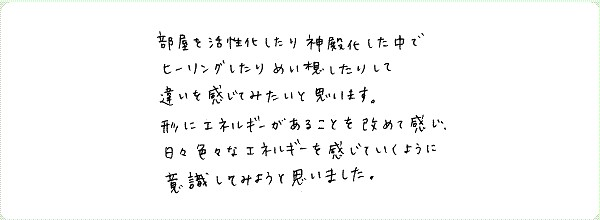 部屋を活性化したり神殿化した中で
ヒーリングしたりめい想したりして
違いを感じてみたいと思います。
形にエネルギーがあることを改めて感じ、
日々色々なエネルギーを感じていくように
意識してみようと思いました。